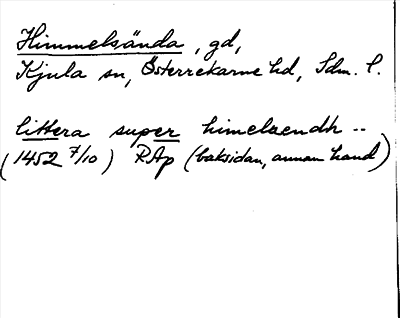 Himmelsända, gd,
Kjula sn, Österrekarne hd, Sdm. l.
littera super himelzendh ..
(1452 7/10) RAp (baksidan, annan hand)